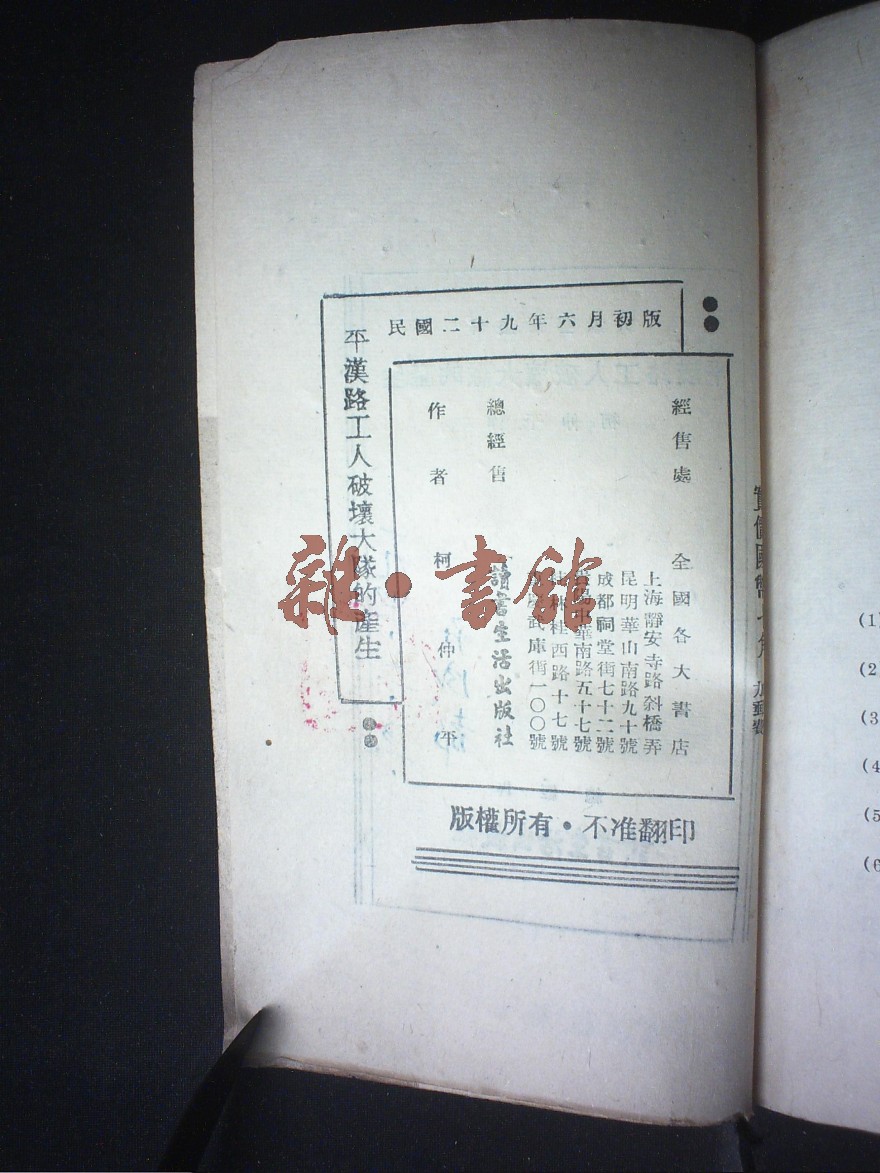 民國二十九年六月初版
平漢路工人破壞大隊的產生
作者 柯仲平
總經售 讀書生活出版社
武庫街一〇〇號
桂西路十七號
中華南路五十七號
成都祠堂街七十二號
昆明華山南路九十號
上海靜安寺路斜橋弄
經售處 全國各大書店
版權所有・不准翻印
雜・書館
實價國幣
加郵費
(1)
(2)
(3)
(4)
(5)
(6)